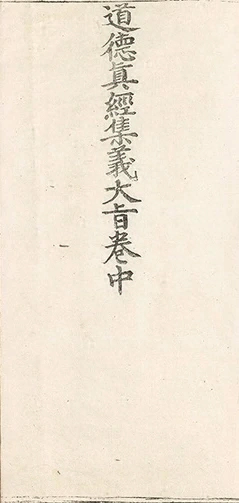 道德真經集義大旨卷中